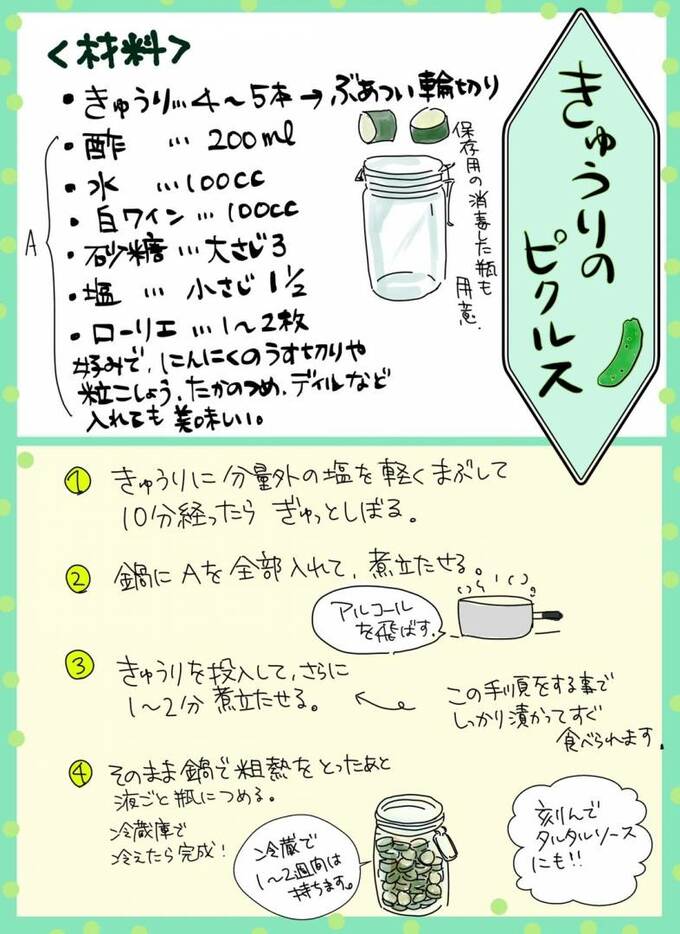 きゅうりの
ピクルス
<材料>
・きゅうり…4〜5本→ぶあつい輪切り
・酢 … 200ml
・水 …100cc
・白ワイン…100cc
・砂糖…大さじ3
・塩 … 小さじ1½
・ローリエ…1〜2枚
好みで、にんにくのうす切りや
粒こしょう、たかのつめ、ディルなど
入れても美味しい。
A
保存用の消毒した瓶も
用意.
① きゅうりに分量外の塩を軽くまぶして
10分経ったら ぎゅっとしぼる。
② 鍋にAを全部入れて、煮立たせる。
アルコール
を飛ばす.
③ きゅうりを投入して、さらに
1〜2分 煮立たせる。
この手順をする事で
しっかり漬かってすぐ
食べられます.
④ そのまま鍋で粗熱をとったあと
液ごと瓶につめる。
冷蔵庫で
冷えたら完成!
冷蔵で
1〜2週間は
持ちます。
刻んで
タルタルソース
にも!!